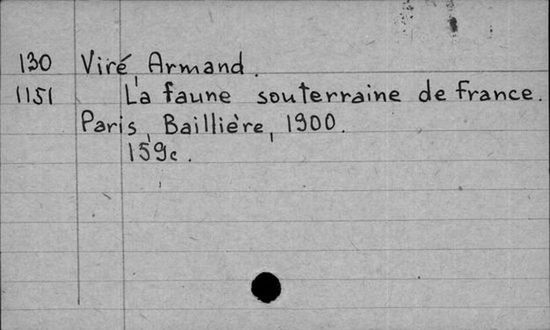 130 Viré, Armand.
1151 La faune souterraine de France.
Paris, Baillière, 1900.
159c.